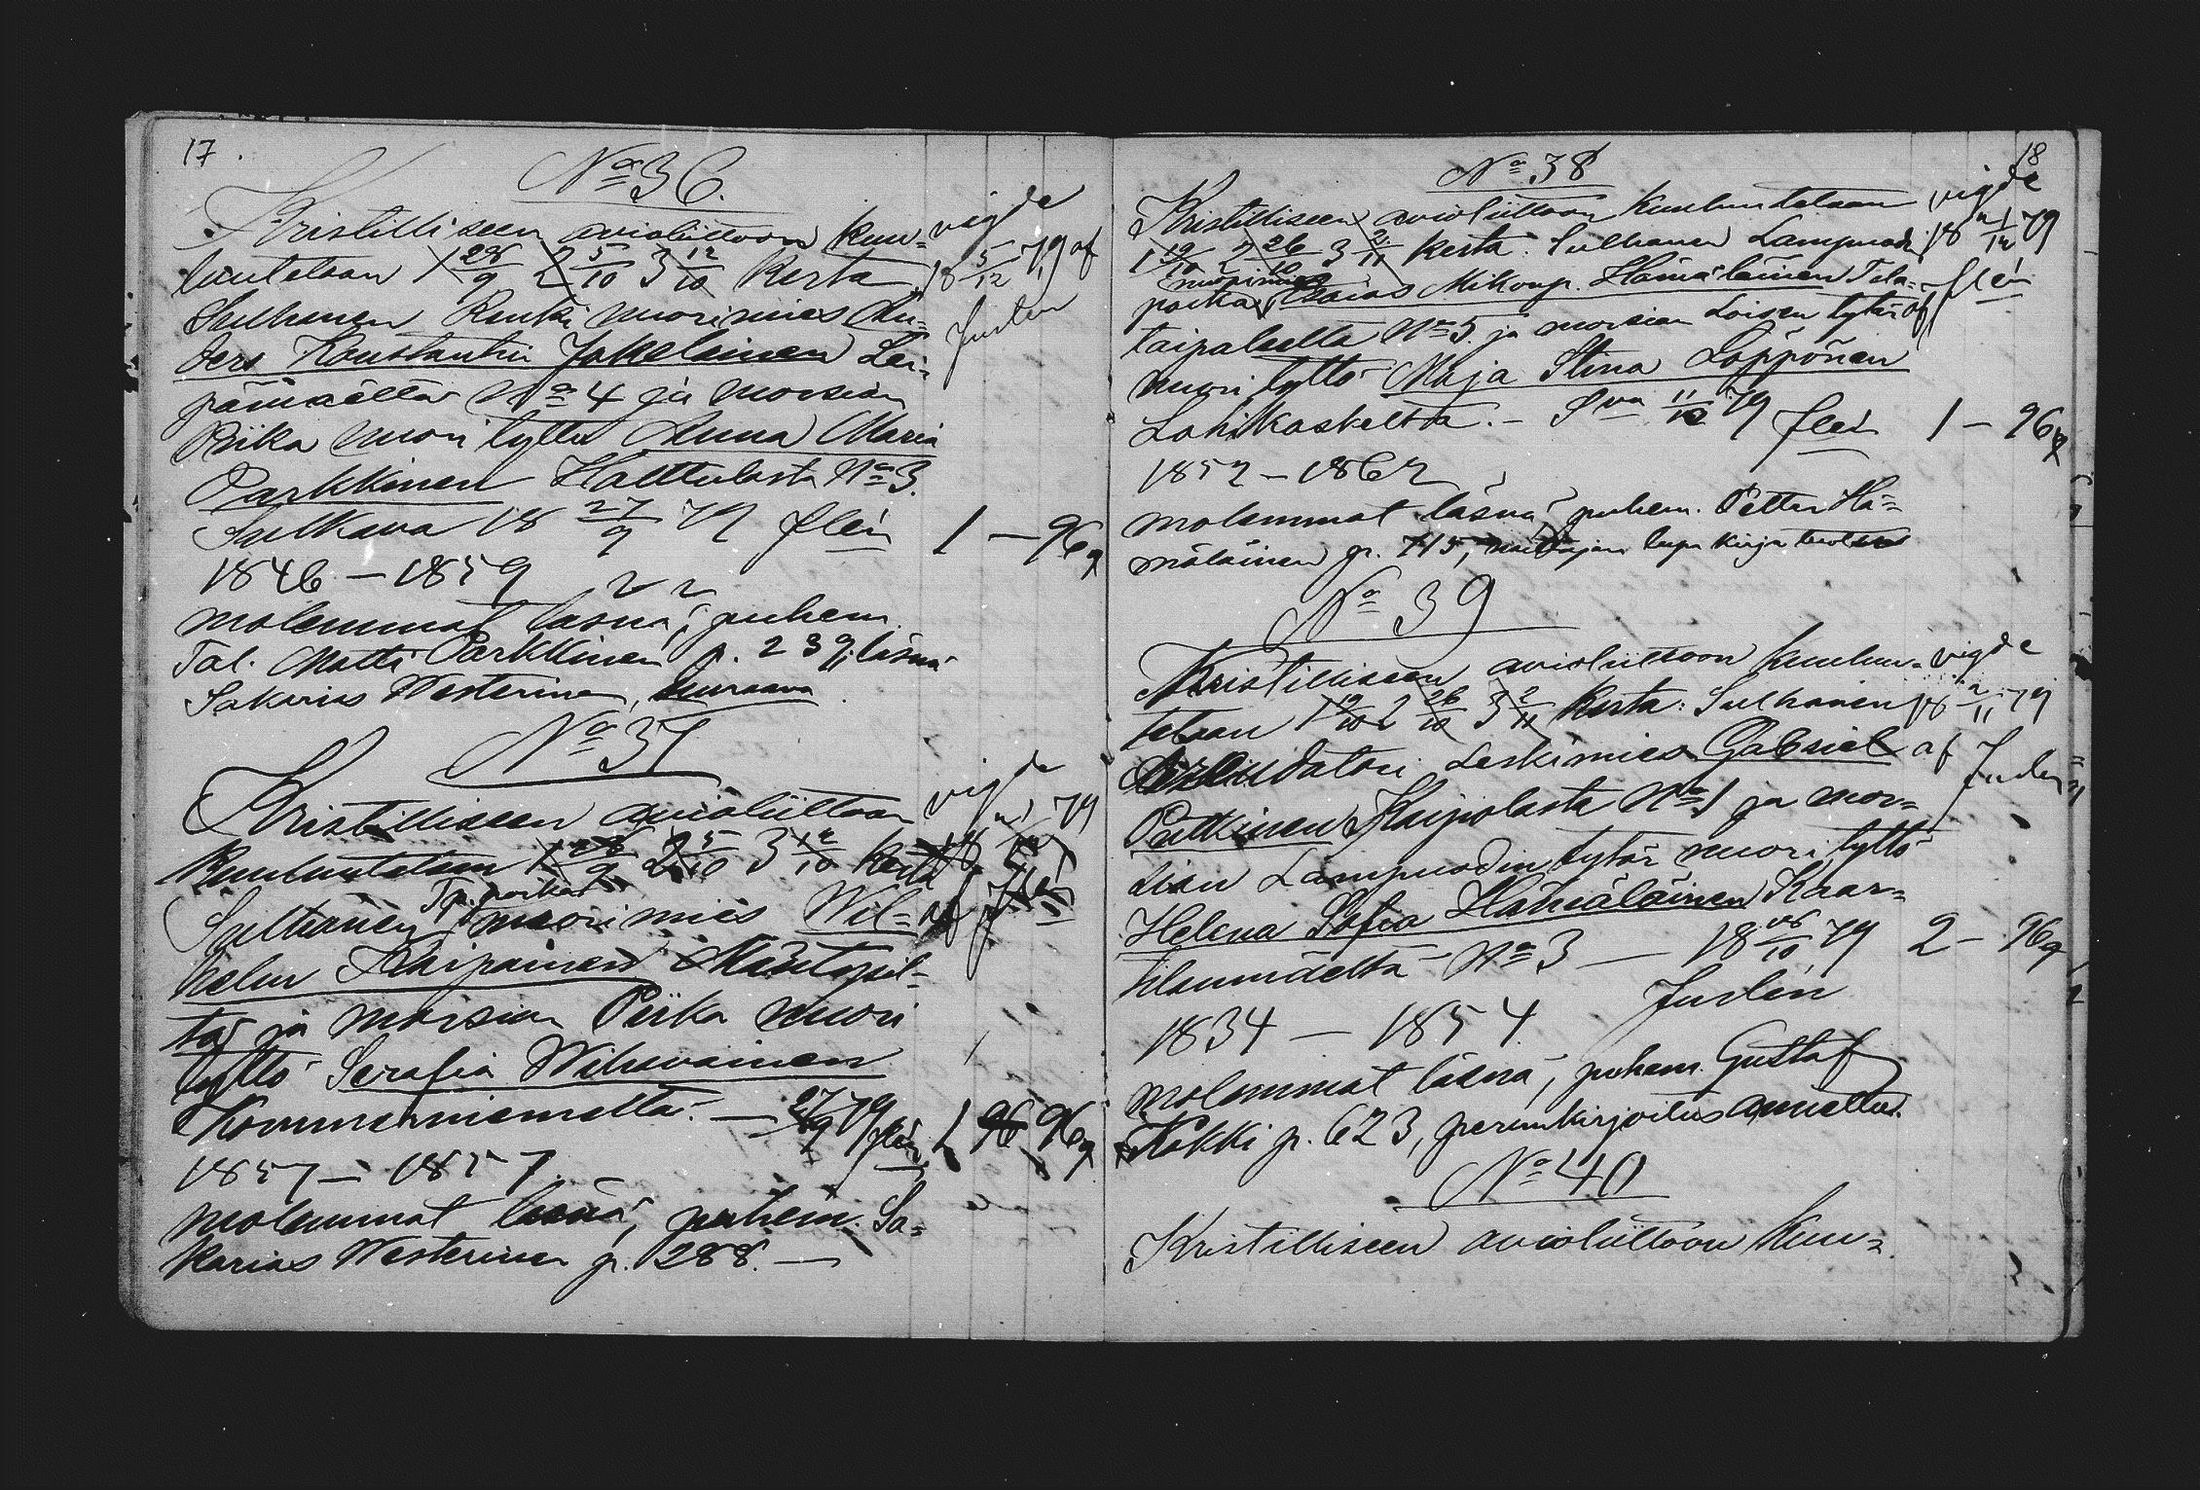 17.
No 36.
Kristilliseen avioliittoon kuu=
lutetaan 1 28/9 2 5/10 3 12/10 kerta
Sulhanen Renki nuorimies An=
ders Konstantin Jakelainen Lei=
pämäältä No 4 ja morsian
Piika nuori tyttö Anna Maria
Parkkinen Halttulasta No 3.
Sulkava 18 27/9 79 flén
1 — 96
1846 — 1859
molemmat läsnä, puhem.
Tal. Matti Parkkinen p. 239, läsnä
Sakarias Westerinen,
vigde
18 5/12 79 af
Juslen
No 37
Kristilliseen avioliittoon
kuulutetaan 1 28/9 2 5/10 3 12/10 kerta
Sulhanen nuorimies Wil=
helm Kaipainen
tä ja morsian Piika nuori
tyttö Serafia Wihavainen
Kommerniemeltä. — 27/9 79 flén 1 96
1857 — 1857
molemmat läsnä, puhem. Sa=
karias Westerinen p. 288. —
vigde
79
af flén
18
No 38
Kristilliseen avioliittoon kuulutetaan
1 19/10 2 26/10 3 2/11 kerta. Sulhanen Lampuodi
nuorimies
poika, Esaias Mikonp. Hämäläinen Tela=
taipaleelta No 5. ja morsian Loisen tytär
nuori tyttö Maja Stina Löppönen
Lohikoskelta. — flén 1 — 96
1857 — 1862
molemmat läsnä, puhem. Petter Hä=
mäläinen p. 715, lupa kirja
vigde
79
af flén
No 39
Kristilliseen avioliittoon kuulu=
tetaan 1 19/10 2 26/10 3 2/11 kerta: Sulhanen
Leskimies Gabriel
Putkinen Kaipolasta No 1 ja mor=
sian Lampuodin tytär nuori tyttö
Helena Sofia Hämäläinen Kaar=
tilanmäeltä No 3 — 18 18/10 79 2 — 96
Juslén
1834 — 1854
molemmat läsnä, puhem. Gustaf
Kokki p. 623, perunkirjoitus annettu.
vigde
18 2/11 79
af Juslen
No 40
Kristilliseen avioliittoon kuu=